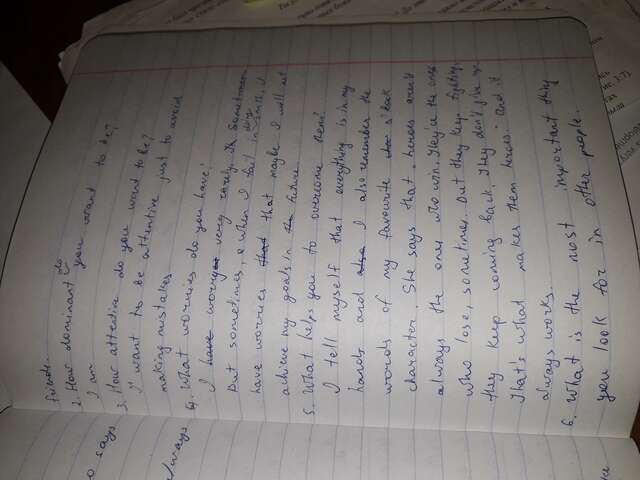 friends.
2. How dominant do you want to be?
I am
3. How attentive do you want to be?
I want to be attentive just to avoid
making mistakes
4. What worries do you have?
I have worry very rarely.
But sometimes when I fail in smth, I
have worries that that maybe I will not
achieve my goals in the future.
5. What helps you to overcome them?
I tell myself that everything is in my
hands and also I also remember the
words of my favourite
character. She says that "heroes aren't
always the ones who win. They're the ones
who lose, sometimes. But they keep fighting,
they keep coming back. They don't give up.
That's what makes them heroes." And it
always works.
6. What is the most important thing
you look for in other people.
o says
always